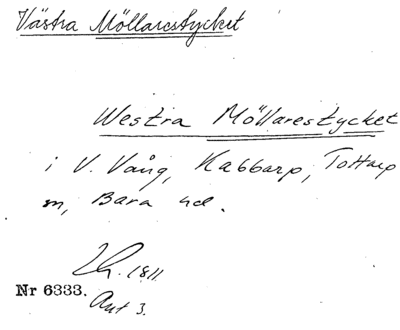 Västra Möllarestycket
Westra Möllarestycket
i V. Vång, Kabbarp, Tottarp
m, Bara hd.
Lh. 1811.
Nr 6333.
Akt 3.